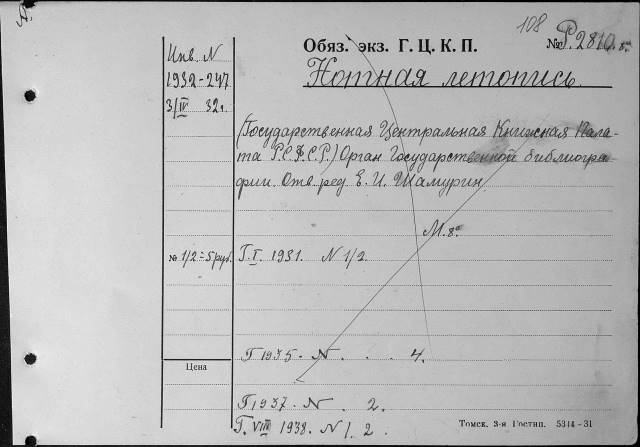 108
Обяз. экз. Г. Ц. К. П.
№ Р. 2810.
Инв. N
1932-247
3/IV 32г.
Нотная летопись.
(Государственная Центральная Книжная Пала-
та Р.С.Ф.С.Р.) Орган Государственной библиогра-
фии. Отв. ред. Е. И. Шамурин.
М. 8°.
№ 1/2 = 5 руб.
Г. I. 1931. N 1/2.
Г 1935 - N . . . 4.
Цена
Г 1937. N . 2.
Г. VIII 1938. N 1. 2.
Томск. 3-я Гостип. 5314-31